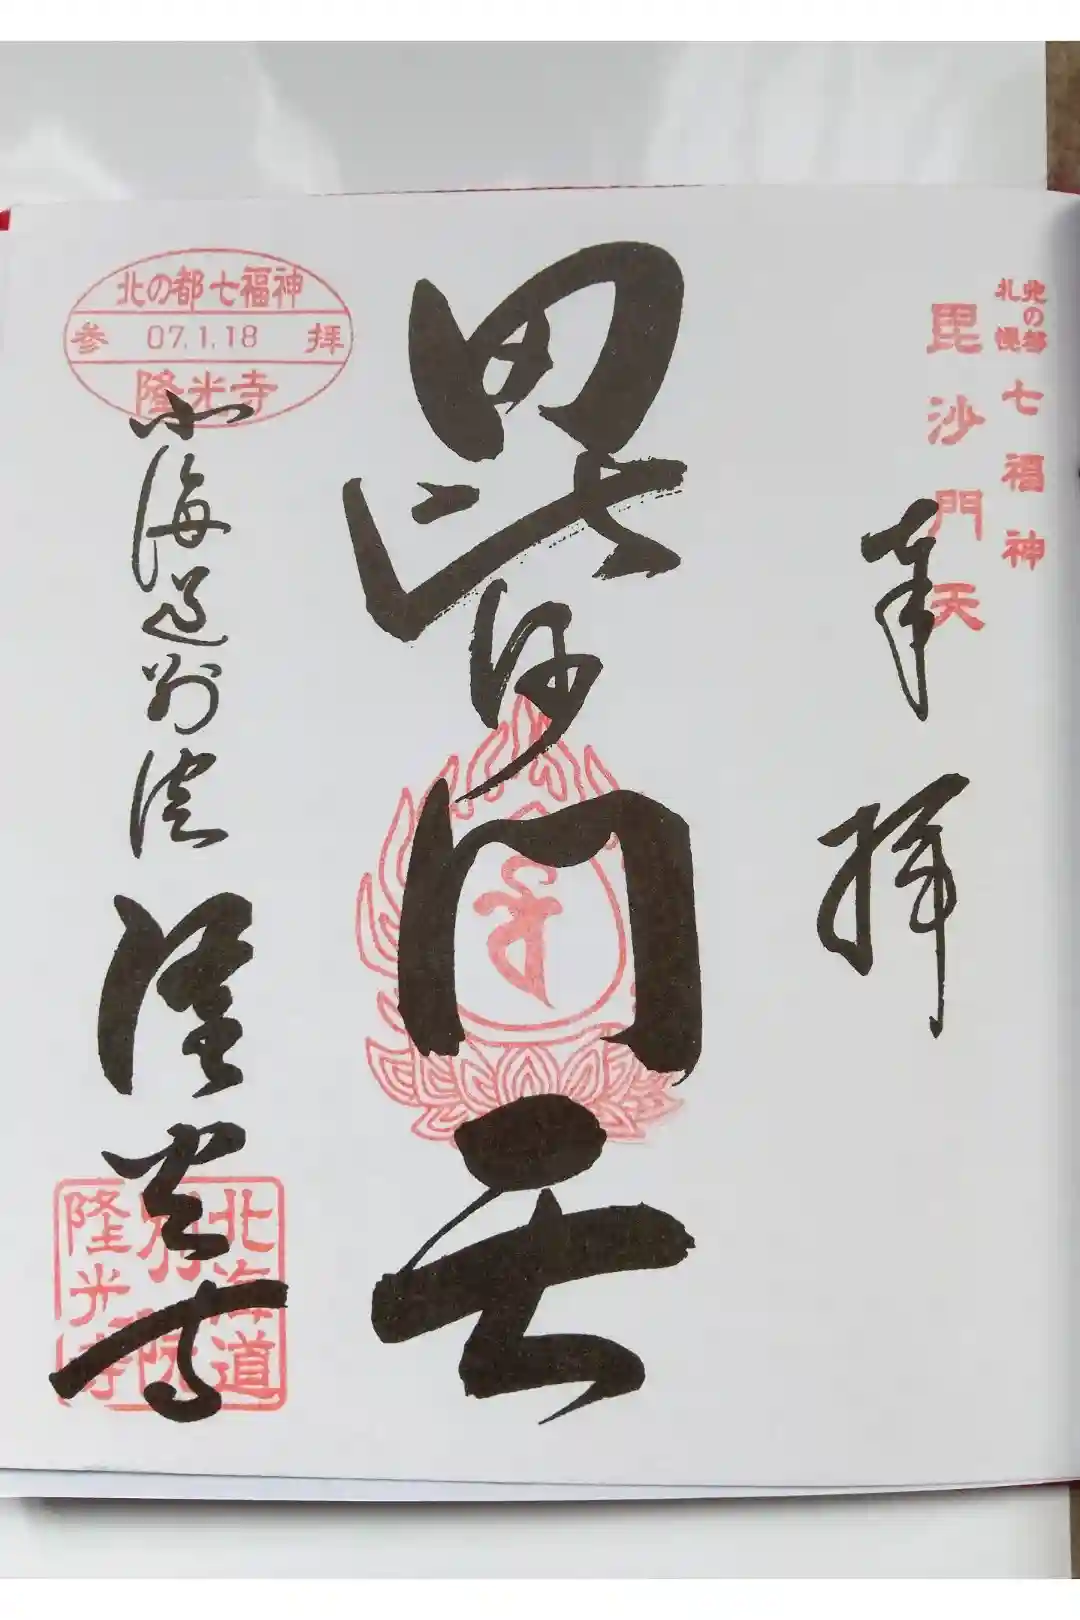 北の都
札幌
七福神
毘沙門天
奉拝
毘沙門天
北海道別院
隆光寺
北の都七福神
参 07.1.18 拝
隆光寺
北海道
別院
隆光寺